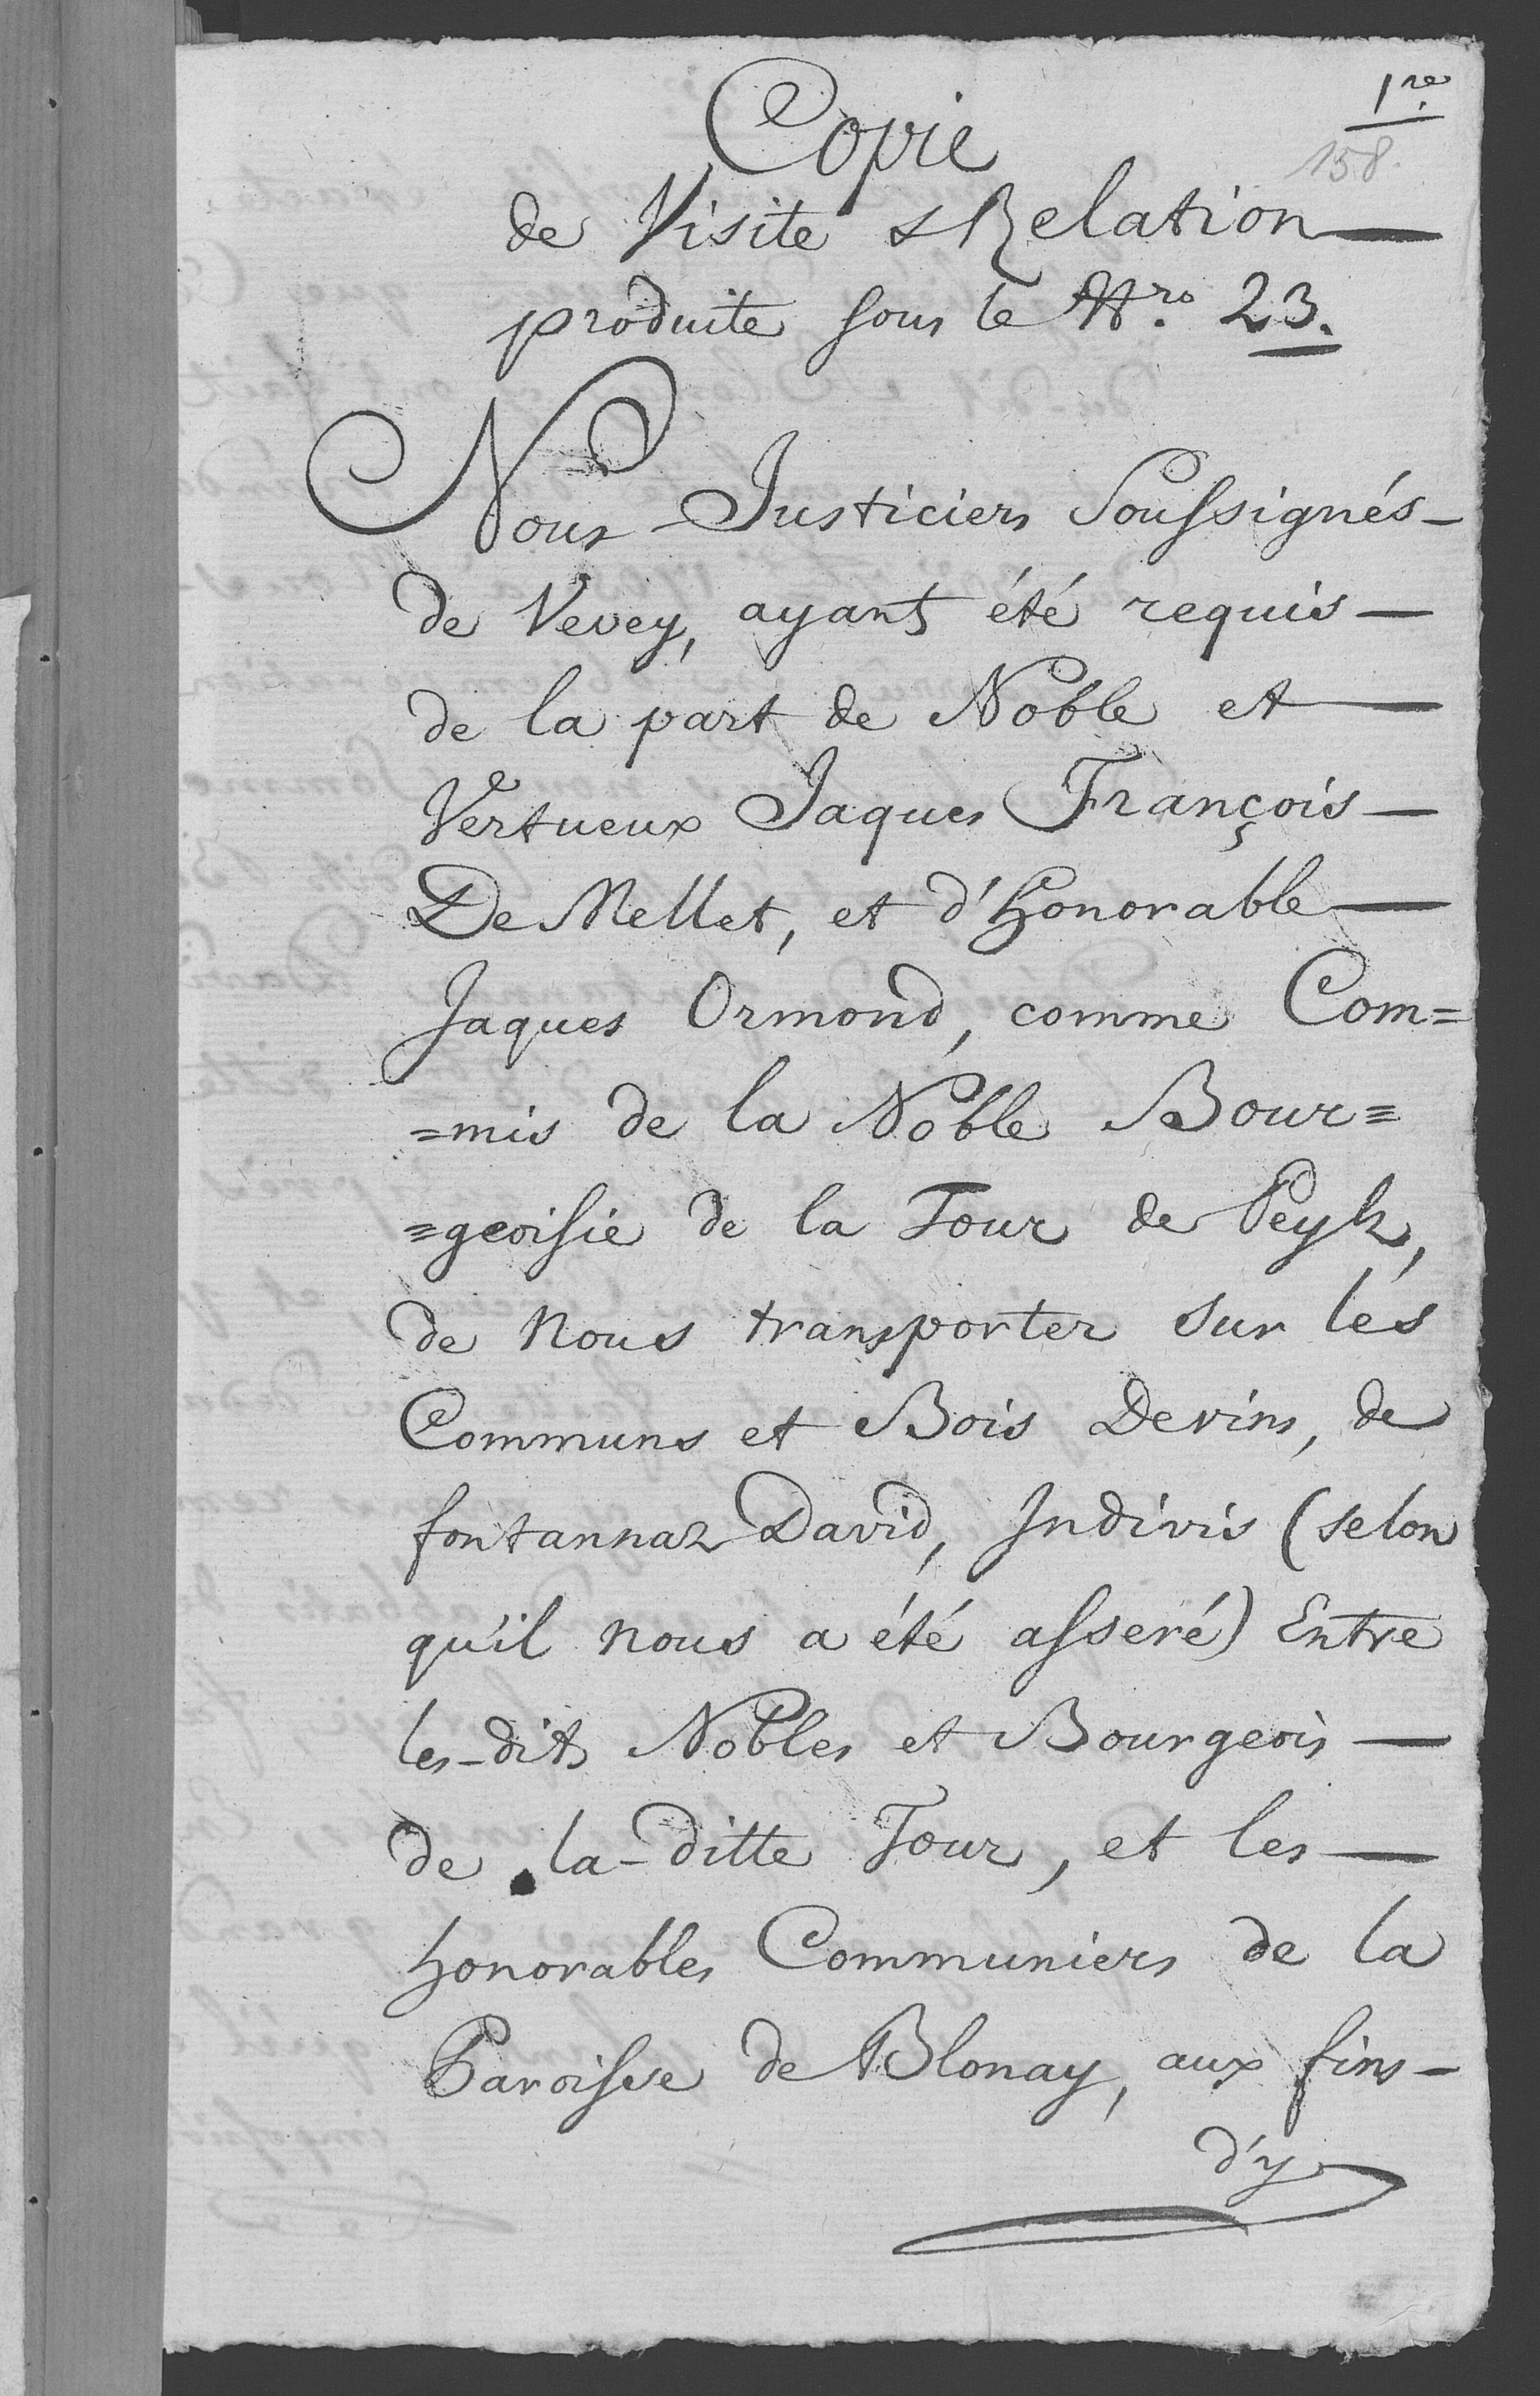 1.re
158.
Copie
de Visite & Relation
produite sous le Nro. 23.
Nous Justiciers Soussignés
de Vevey, ayant été requis
de la part de Noble et
Vertueux Jaques François
De Mellet, et d'honorable
Jaques Ormond, comme Com=
=mis de la Noble Bour=
=geoisie de la Tour de Peylz,
de nous transporter sur les
Communs et Bois Devins, de
fontannaz David, Indivis (selon
qu'il nous a été asseré) Entre
les-dits Nobles et Bourgeois
de la-ditte Tour, et les
honorables Communiers de la
Paroisse de Blonay, aux fins
d'y